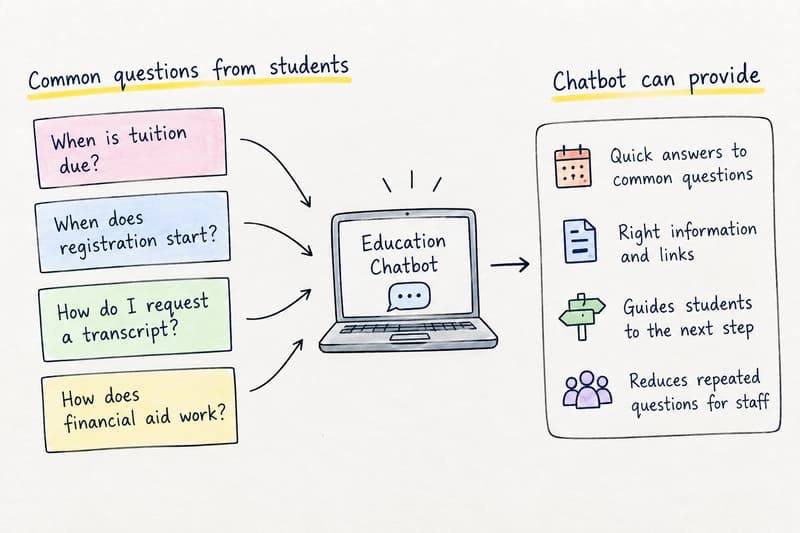 Common questions from students
When is tuition
due?
When does
registration start?
How do I request
a transcript?
How does
financial aid work?
Education
Chatbot
Chatbot can provide
Quick answers to
common questions
Right information
and links
Guides students
to the next step
Reduces repeated
questions for staff